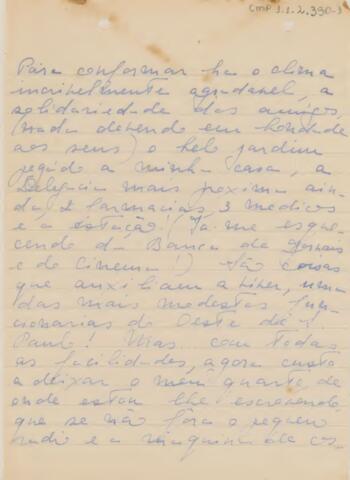 CMP 1.1.2.390-3
Para conformar ha o clima
incrivelmente agradavel, a
solidariedade dos amigos,
(nada devendo em bondade
aos seus) o belo jardim
pegado a minha casa, a
Delegacia mais proxima ain-
da, 2 farmacias, 3 medicos
e a estação! (Ia-me esque-
cendo da Banca de Jornais
e do Cinema!) São coisas
que auxiliam a viver, uma
das mais modestas fun-
cionarias do Oeste de S.
Paulo! Mas com todas
as facilidades, agora custo
a deixar o meu quarto, de
onde estou lhe escrevendo,
que se não fôra o pequeno
radio e a maquina de cos-